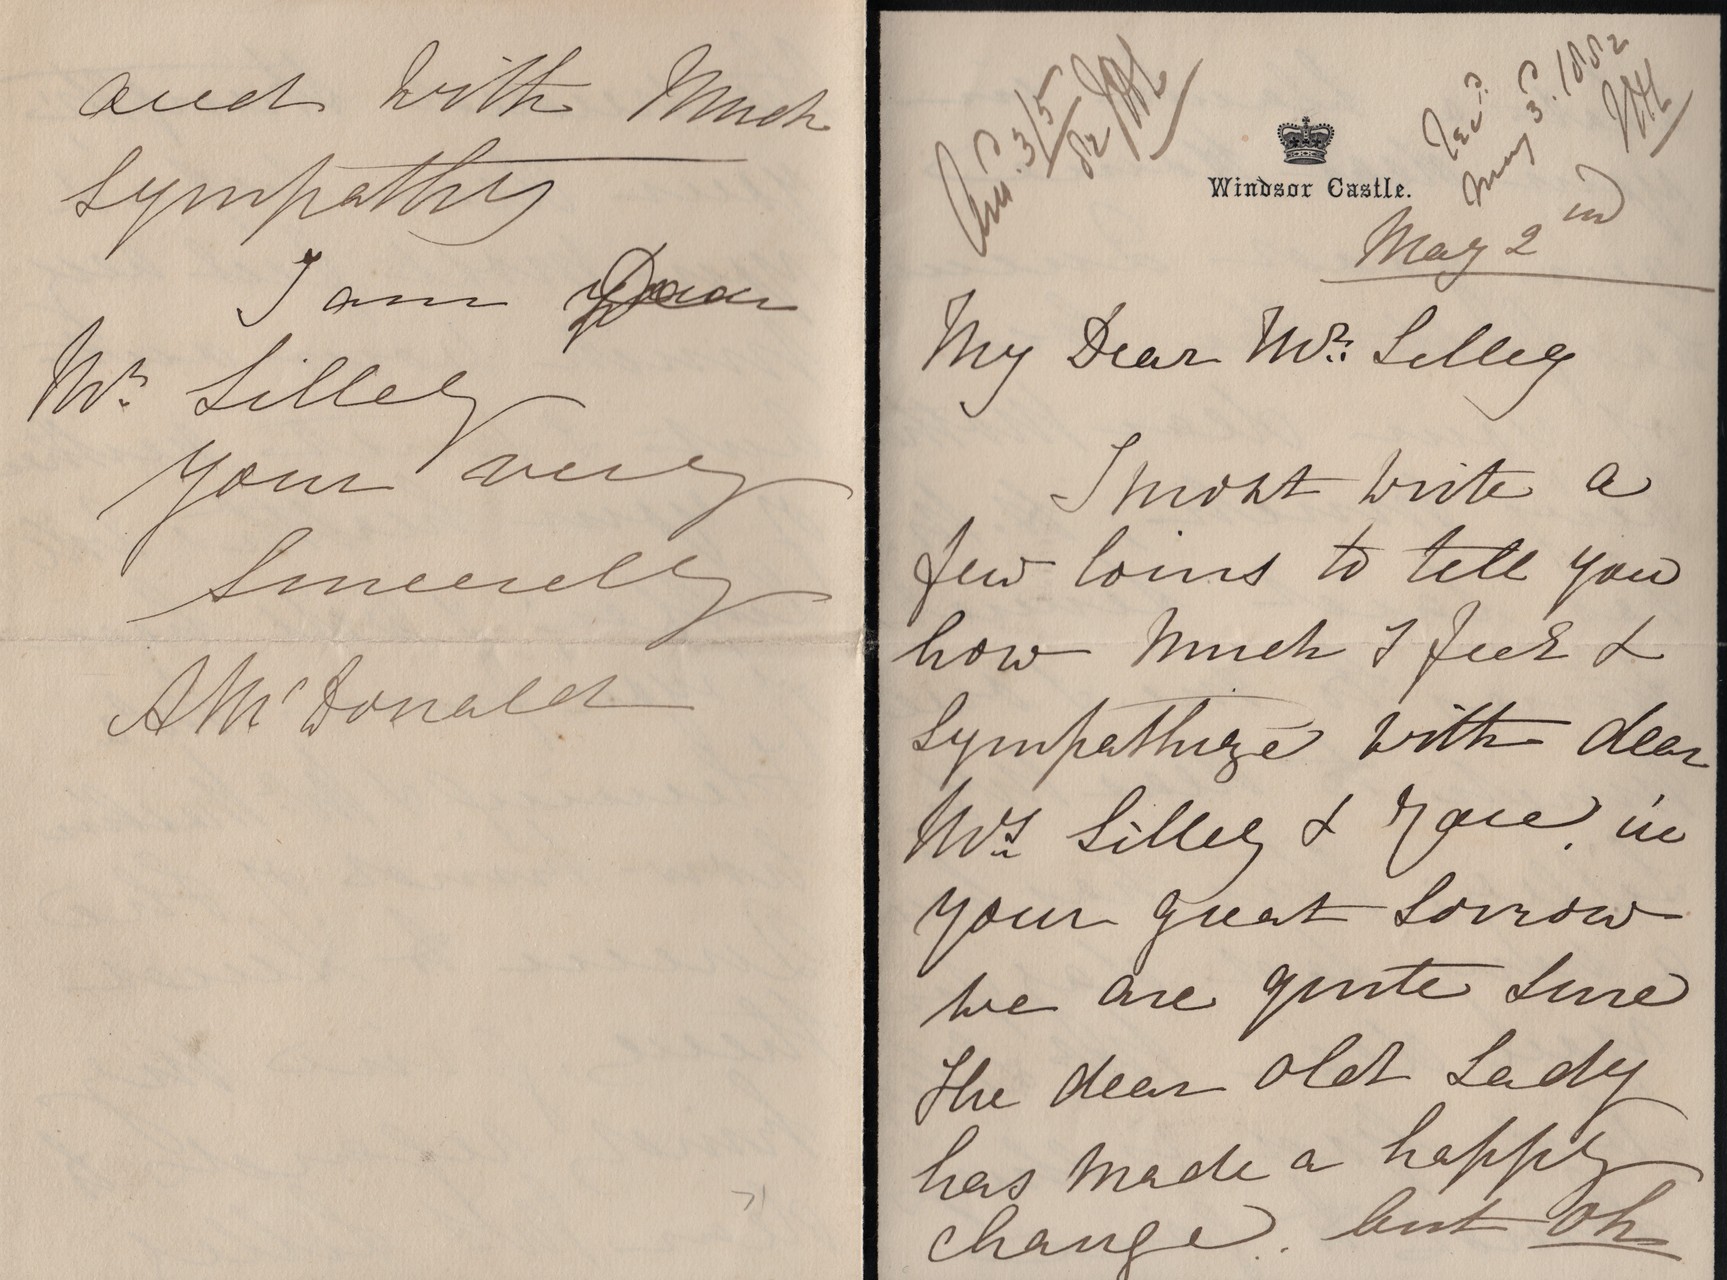 and with Much
sympathy
I am Dear
Mr. Lilley
your very
Sincerely
A McDonald
71
Ans. 3/5
82
Windsor Castle.
Recd.
May 3. 1882
May 2nd
My Dear Mr. Lilley
I most write a
few loins to tell you
how Much I feel &
Sympathize with dear
Mrs Lilley & you, in
your great Sorrow
we are quite Sure
the dear old Lady
has Made a happy
change. but Oh